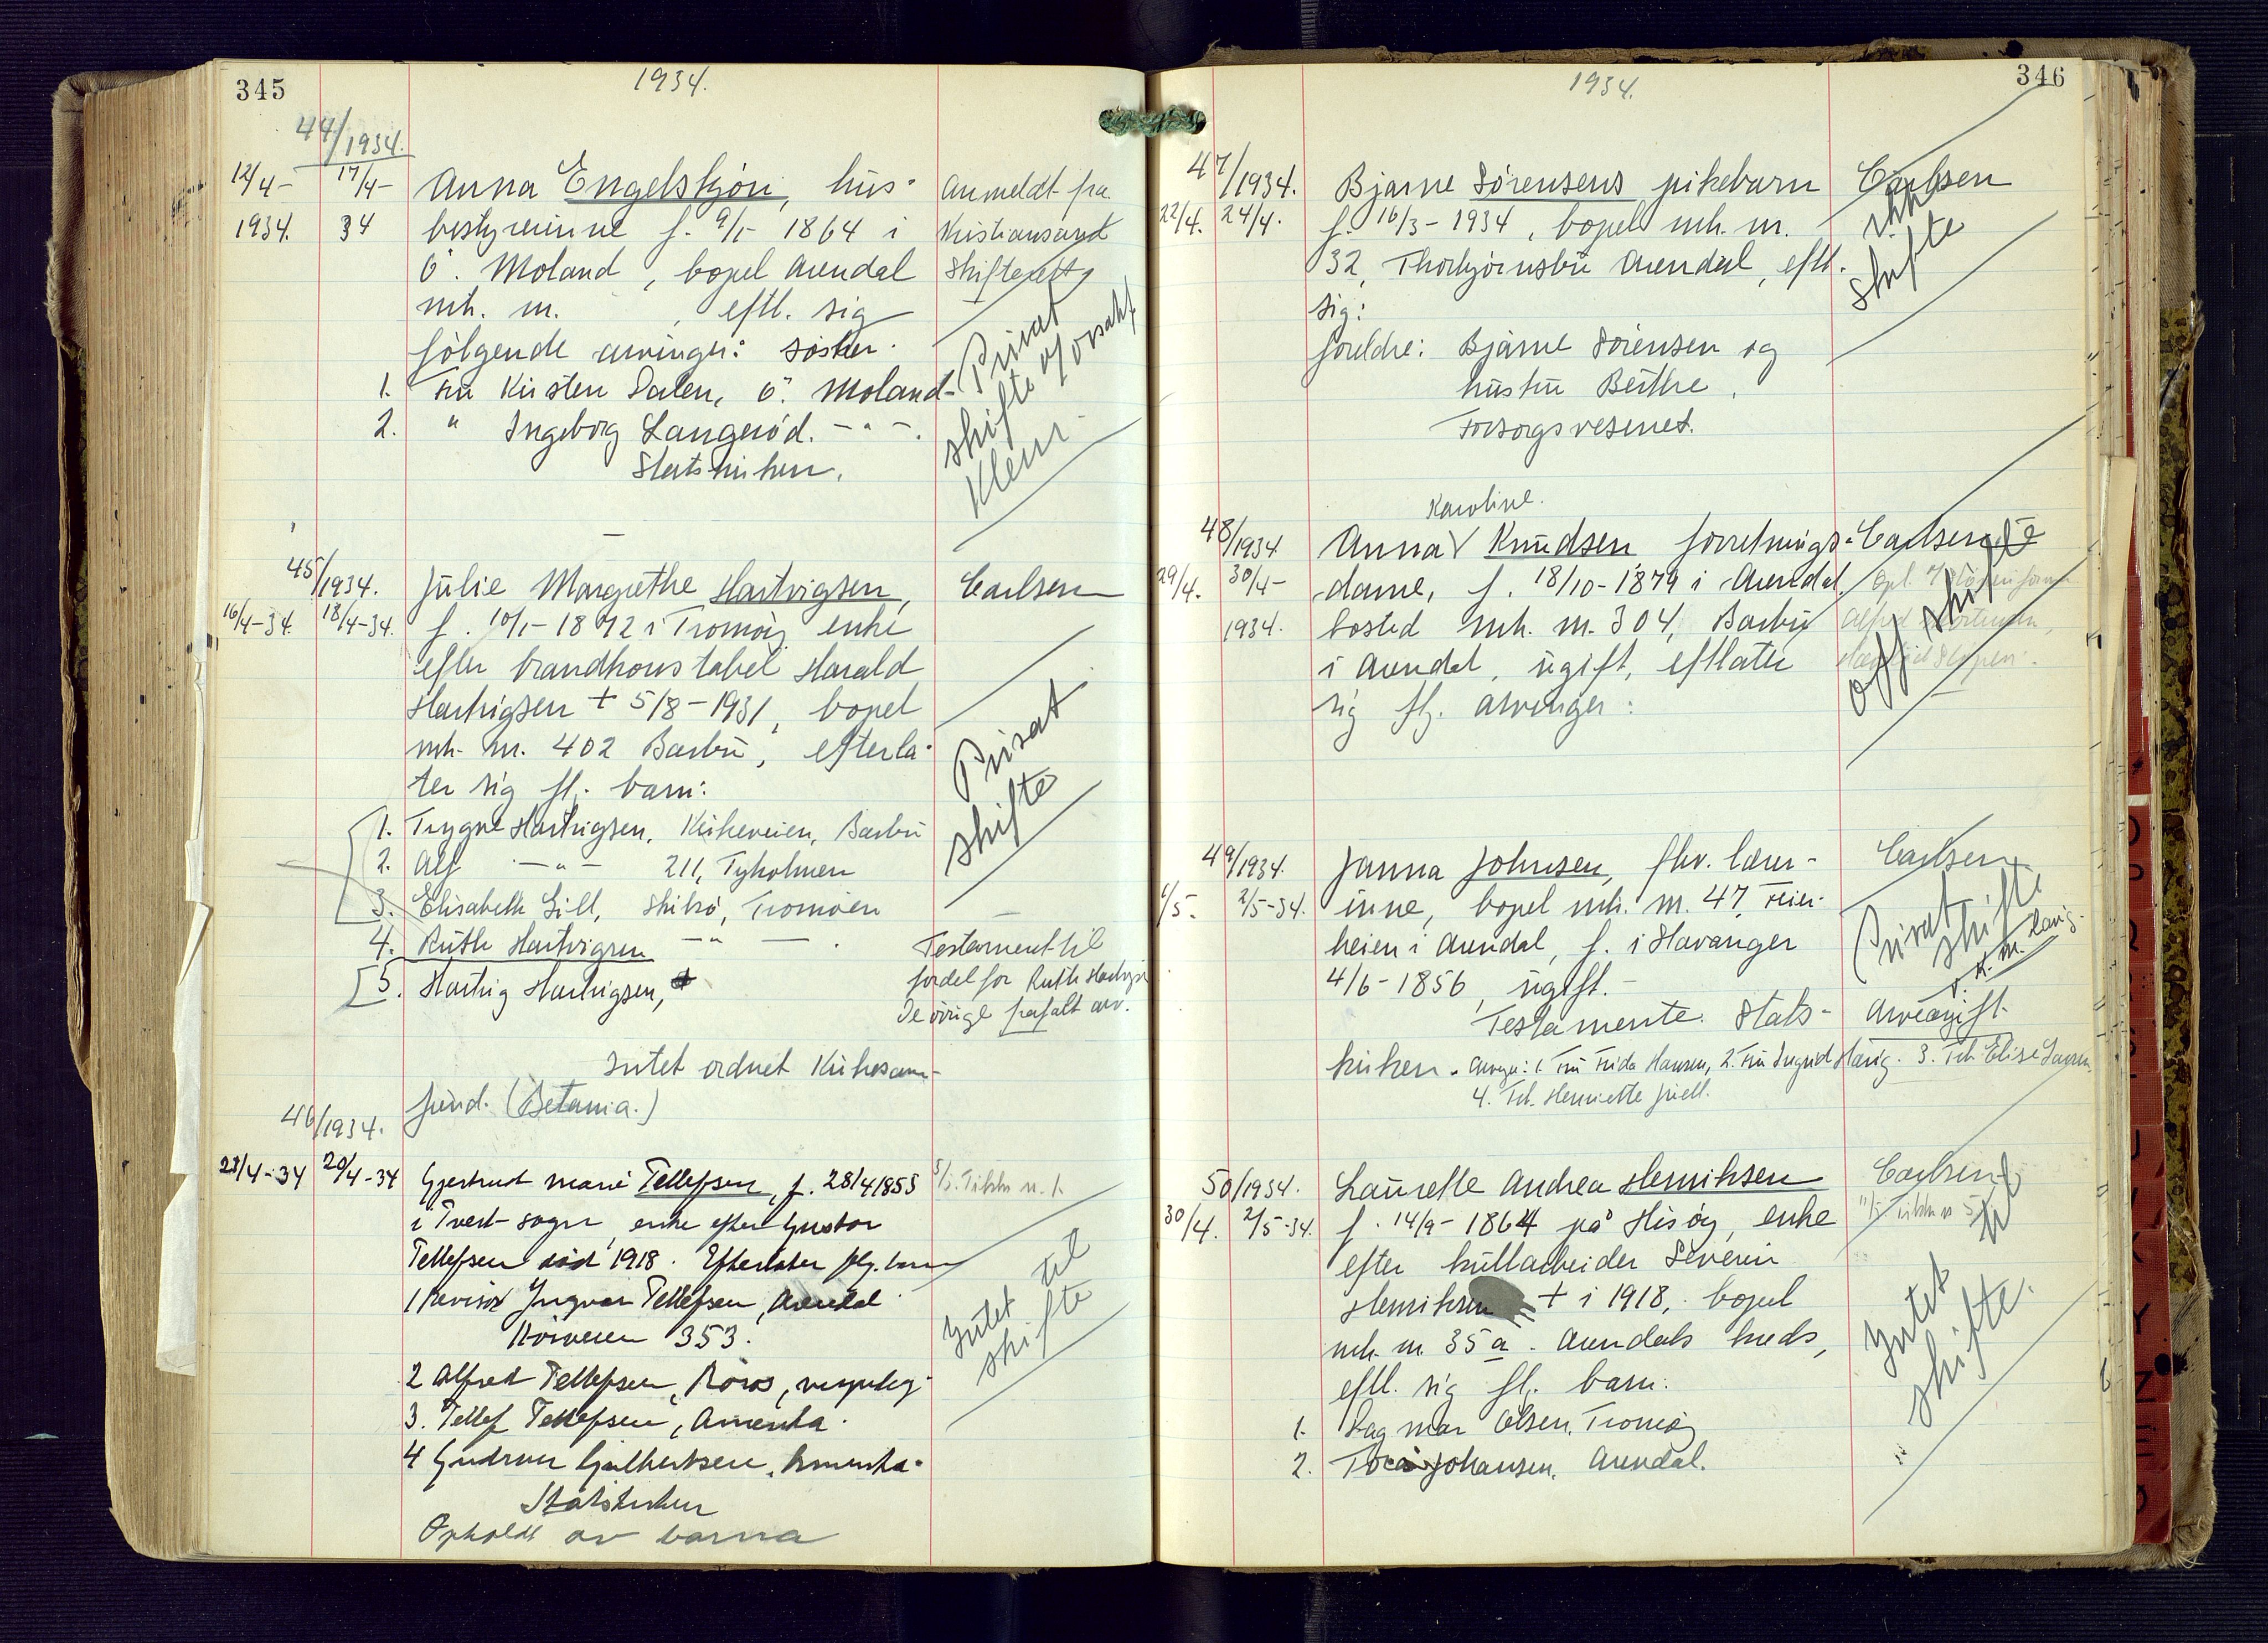 345
1934.
44/1934.
12/4- 17/4- Anna Engelskjön, hus-
1934. 34 bestyrerinne f. 9/1- 1864 i
ö. Moland, bopel Arendal
mh. nr. , eftl. sig
følgende arvinger: søsken.
1. Fru Kirsten Dalen, ö. Moland-
2. " Ingeborg Langerød. - " -.
Statskirken.
Anmeldt fra
Kristiansand
Skifterett
Privat
skifte
45/1934. Julie Margrethe Hartvigsen,
16/4-34. 18/4-34. f. 10/1-1872 i Tromøy enke
efter brandkonstabel Harald
Hartvigsen + 5/8-1931, bopel
mh. nr. 402 Barbu, efterla-
ter sig fl. barn:
1. Trygve Hartvigsen, Kirkeveien, Barbu
2. Alf - " - 211, Tyholmen
3. Elisabeth Gill, Skilsø, Tromøen
4. Ruth Hartvigsen - " - .
5. Hartvig Hartvigsen,
Intet ordnet Kirkesam-
fund. (Betania.)
Carlsen
Privat
skifte
Testament til
fordel for Ruth Hartvigs
De øvrige frafalt arv.
46/1934.
20/4-34 Gjertrud Marie Tellefsen, f. 28/4 1853
i Tveit sogn, enke efter Gustav
Tellefsen död 1918. Efterlater flg. barn
1 Revisor Yngvar Tellefsen, Arendal
353.
2 Alfred Tellefsen, Röros,
3. Tellef Tellefsen, Amerika.
4 Gudrun Gjilbertsen, Amerika.
Statskirken
Opholdt av barna
Intet til
skifte
346
1934.
47/1934. Bjarne Sörensens pikebarn
22/4. 24/4. f. 16/3-1934, bopel mh. nr.
32, Thorbjörnsbu Arendal, eftl.
sig:
foreldre: Bjarne Sörensen og
hustru Berthe.
Forsorgsvesenet.
Carlsen
ikke
skifte
Karoline.
48/1934 Anna Knudsen forretnings-
29/4. 30/4- dame, f. 18/10-1879 i Arendal.
1934. bosted mh. nr. 304, Barbu
i Arendal, ugift, efterlater
sig flg. arvinger:
Carlsen
off. skifte
49/1934. Janna Johnsen, fhv. lærer-
1/5. 2/5-34. inne, bopel mh. nr. 47,
heien i Arendal, f. i Stavanger
4/6-1856, ugift.-
Testamente. Stats-
kirken. Arvger: 1. Fru Frida Hansen, 2. Fru Ingrid Harig. 3. Frk. Elise Larsen,
4. Frk. Henriette Juell.
Carlsen
Privat
skifte
Arveavgift.
50/1934. Laurette Andrea Henriksen
30/4. 2/5-34. f. 14/9-1864 på Hisöy, enke
efter kullarbeider Severin
Henriksen + i 1918, bopel
mh. nr. 35 a. Arendals kreds,
eftl. sig fl. barn:
1. Dagmar Olsen, Tromøy
2. Tora Johansen, Arendal.
Carlsen
Intet til
skifte.